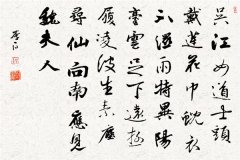 吳江女道士頭
戴蓮花巾霓衣
不濕雨特異陽
臺雲足下遠遊
履凌波生素塵
尋仙向南應見
魏夫人